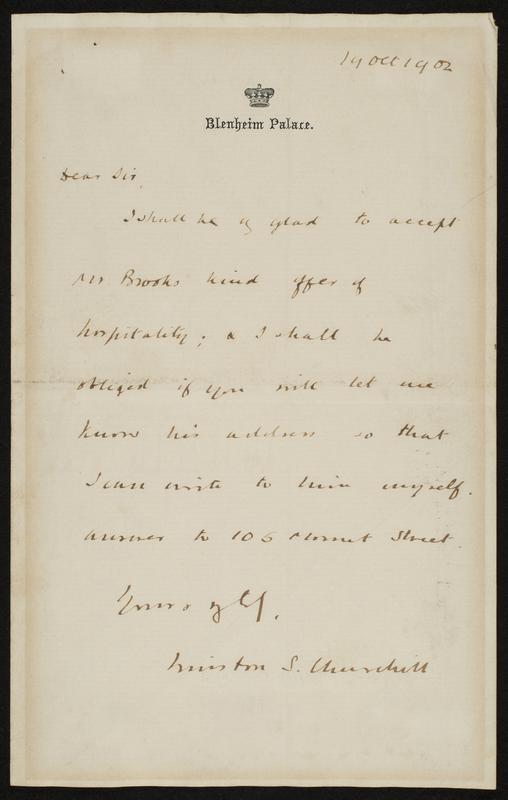 19 Oct 1902
Blenheim Palace.
Dear Sir,
I shall be vy glad to accept
Mr Brooks kind offer of
hospitality; & I shall be
obliged if you will let me
know his address so that
I can write to him myself.
Answer to 105 Mount Street.
Yours vy
Winston S. Churchill